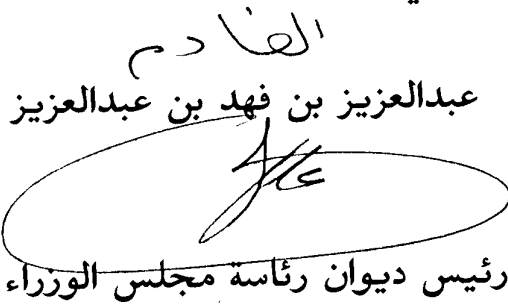 القادم
عبدالعزيز بن فهد بن عبدالعزيز
رئيس ديوان رئاسة مجلس الوزراء